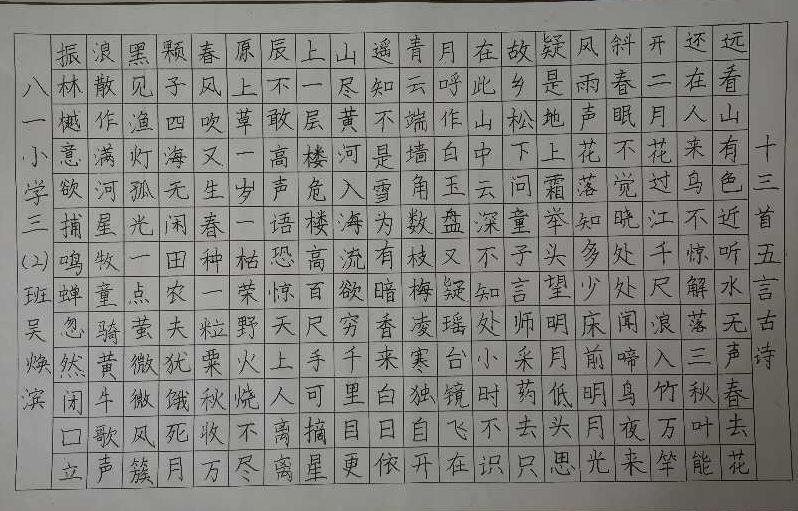 十三首五言古诗
远看山有色近听水无声春去花
还在人来鸟不惊解落三秋叶能
开二月花过江千尺浪入竹万竿
斜春眠不觉晓处处闻啼鸟夜来
风雨声花落知多少床前明月光
疑是地上霜举头望明月低头思
故乡松下问童子言师采药去只
在此山中云深不知处小时不识
月呼作白玉盘又疑瑶台镜飞在
青云端墙角数枝梅凌寒独自开
遥知不是雪为有暗香来白日依
山尽黄河入海流欲穷千里目更
上一层楼危楼高百尺手可摘星
辰不敢高声语恐惊天上人离离
原上草一岁一枯荣野火烧不尽
春风吹又生春种一粒粟秋收万
颗子四海无闲田农夫犹饿死月
黑见渔灯孤光一点萤微微风簇
浪散作满河星牧童骑黄牛歌声
振林樾意欲捕鸣蝉忽然闭口立
八一小学三(2)班吴焕滨